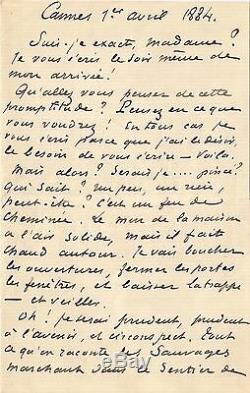 Cannes 1er avril 1884.
Suis-je exact, madame ?
Je vous écris le soir même de
mon arrivée !
Qu'allez vous penser de cette
promptitude ? Pensez en ce que
vous voudrez ! En tous cas je
vous écris parce que j'ai le désir,
le besoin de vous écrire - Voila.
Mais alors ? Serais je .... pincé ?
Qui sait ? un peu, un rien,
peut-être ? c'est un feu de
cheminée. Le mur de la maison
a l'air solide, mais il fait
chaud autour. Je vais boucher
les ouvertures, fermer les portes
les fenêtres, et baisser la trappe
- et veiller.
Oh ! je serai prudent, prudent
à l'avenir, et circonspect. Tout
ce qu'on raconte des Sauvages
marchant dans le sentier de